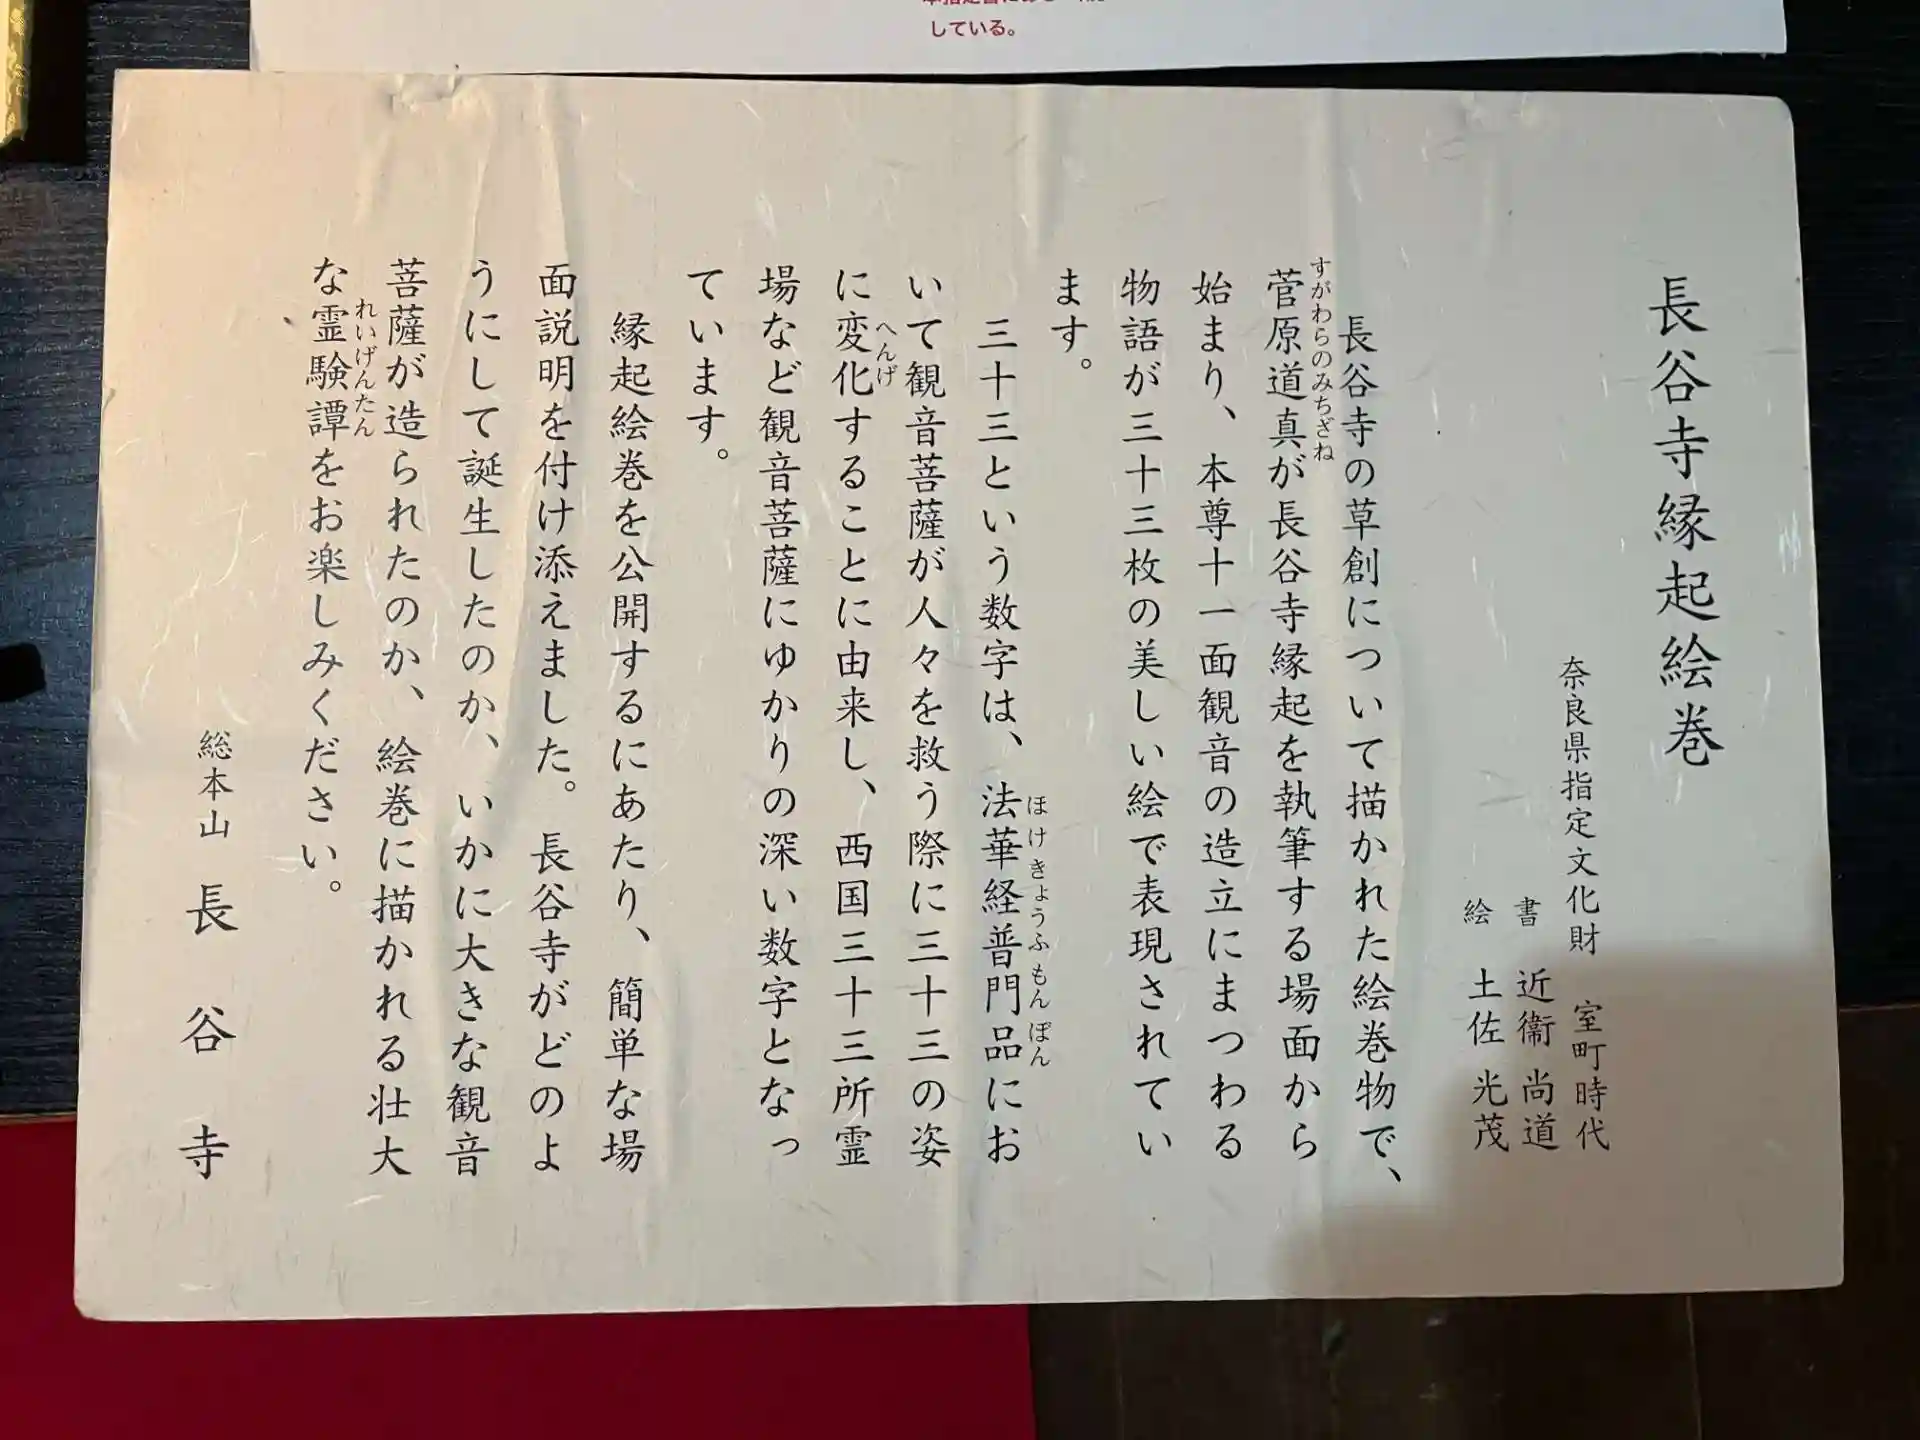 している。
長谷寺縁起絵巻
奈良県指定文化財 室町時代
書 近衞 尚道
絵 土佐 光茂
長谷寺の草創について描かれた絵巻物で、
菅原道真が長谷寺縁起を執筆する場面から
すがわらのみちざね
始まり、本尊十一面観音の造立にまつわる
物語が三十三枚の美しい絵で表現されてい
ます。
三十三という数字は、法華経普門品にお
ほけきょうふもんぼん
いて観音菩薩が人々を救う際に三十三の姿
に変化することに由来し、西国三十三所霊
へんげ
場など観音菩薩にゆかりの深い数字となっ
ています。
縁起絵巻を公開するにあたり、簡単な場
面説明を付け添えました。長谷寺がどのよ
うにして誕生したのか、いかに大きな観音
菩薩が造られたのか、絵巻に描かれる壮大
な霊験譚をお楽しみください。
れいげんたん
総本山 長谷寺